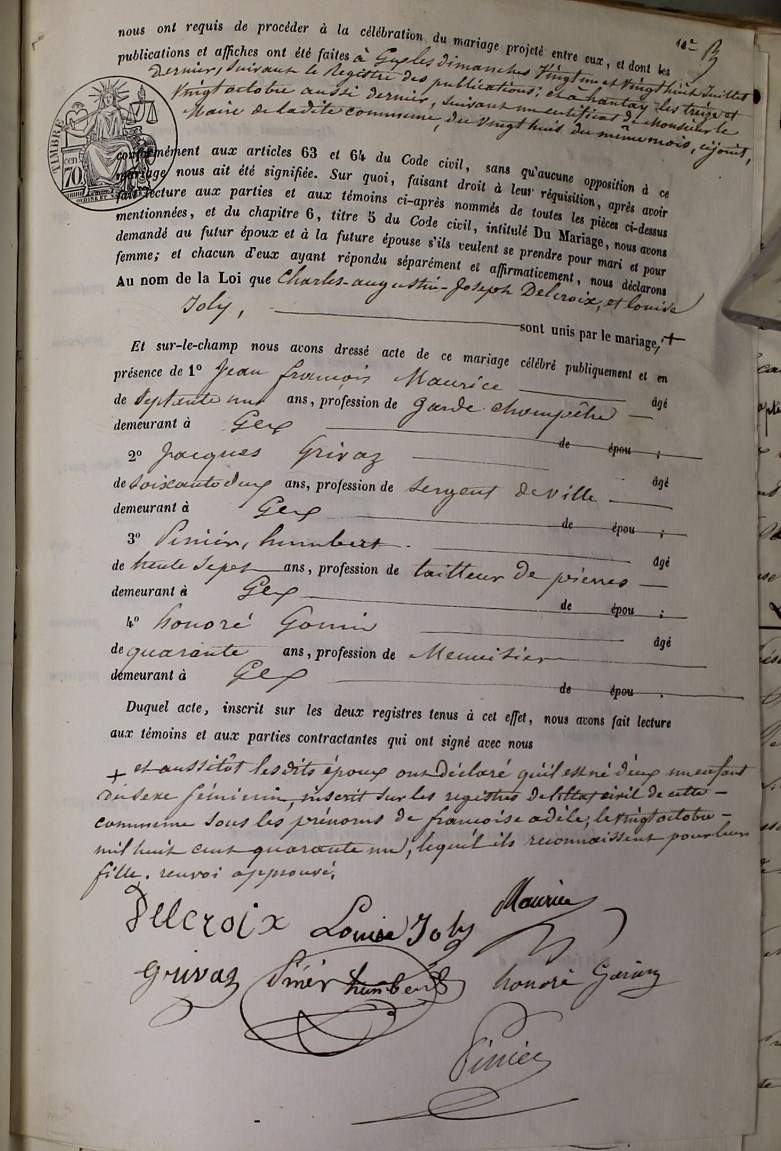 nous ont requis de procéder à la célébration du mariage projeté entre eux, et dont les
publications et affiches ont été faites à Gex les dimanches vingt un et vingt huit Juillet
dernier, suivant le Registre des publications; et à hantay les treize et
vingt octobre aussi dernier, suivant un certificat de Monsieur le
Maire de ladite commune, du vingt huit du même mois, cijoint,
TIMBRE
cen
70
conformément aux articles 63 et 64 du Code civil, sans qu'aucune opposition à ce
mariage nous ait été signifiée. Sur quoi, faisant droit à leur réquisition, après avoir
fait lecture aux parties et aux témoins ci-après nommés de toutes les pièces ci-dessus
mentionnées, et du chapitre 6, titre 5 du Code civil, intitulé Du Mariage, nous avons
demandé au futur époux et à la future épouse s'ils veulent se prendre pour mari et pour
femme; et chacun d'eux ayant répondu séparément et affirmativement, nous déclarons
Au nom de la Loi que Charles-augustin-Joseph Delcroix, et louise
Joly, sont unis par le mariage, +
Et sur-le-champ nous avons dressé acte de ce mariage célébré publiquement et en
présence de 1º Jean françois Maurice âgé
de Septante un ans, profession de garde champêtre
demeurant à Gex de épou ;
2º Jacques Grivaz âgé
de soixante deux ans, profession de Sergent de ville
demeurant à Gex de épou ;
3º Pinier, humbert âgé
de trente sept ans, profession de tailleur de pierres
demeurant à Gex de épou ;
4º honoré âgé
de quarante ans, profession de Menuisier
demeurant à Gex de épou .
Duquel acte, inscrit sur les deux registres tenus à cet effet, nous avons fait lecture
aux témoins et aux parties contractantes qui ont signé avec nous
+ et aussitôt lesdits époux ont déclaré qu'il est né d'eux un enfant
du sexe féminin, inscrit sur les registres de l'état civil de cette
commune sous les prénoms de françoise adèle, le vingt octobre
mil huit cent quarante un, lequel ils reconnaissent pour leur
fille. renvoi approuvé.
Delcroix Louise Joly Maurice
Grivaz Pinier humbert honoré
Pinier